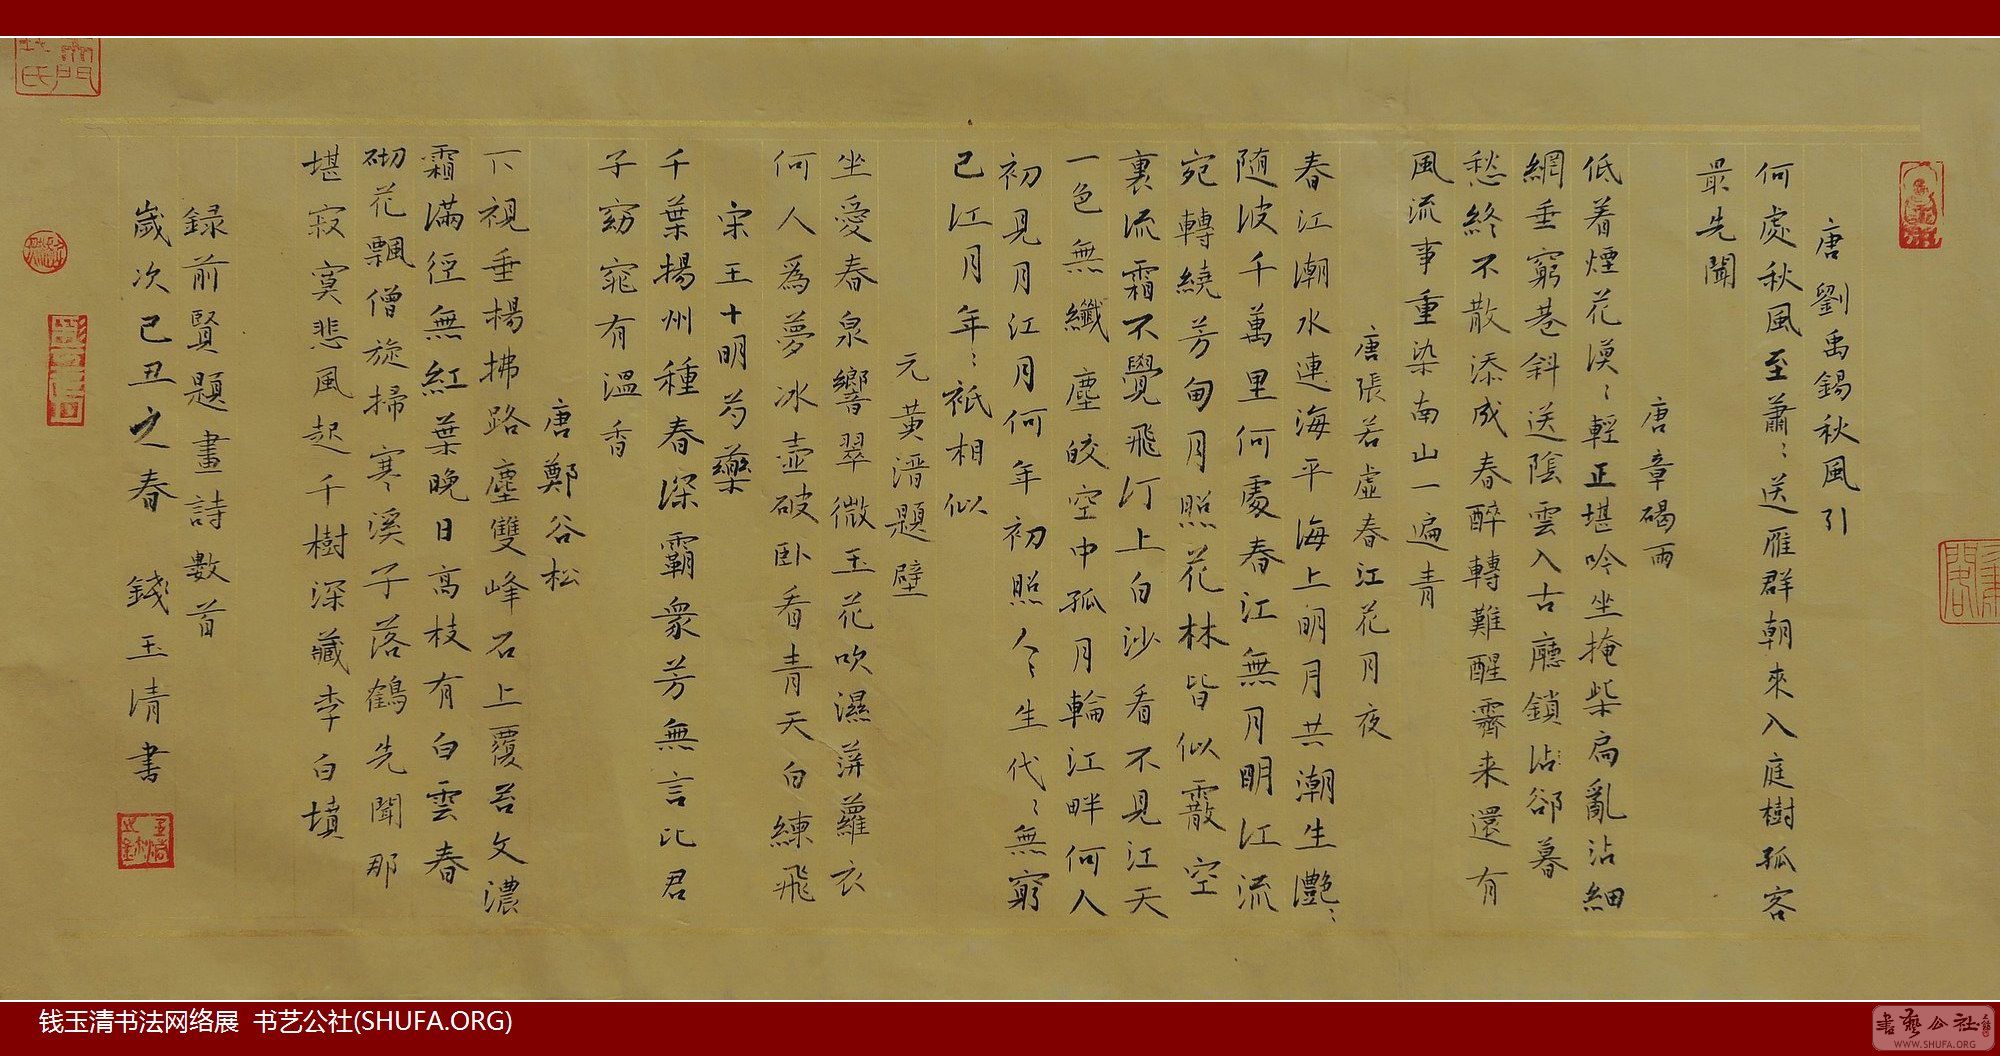 唐劉禹錫秋風引
何處秋風至蕭〻送雁群朝來入庭樹孤客
最先聞
唐章碣雨
低着煙花漠〻輕正堪吟坐掩柴扃亂沾細
網垂窮巷斜送陰雲入古廳鎖却暮
愁終不散添成春醉轉難醒霽来還有
風流事重染南山一遍青
唐張若虛春江花月夜
春江潮水連海平海上明月共潮生灔〻
随波千萬里何處春江無月明江流
宛轉繞芳甸月照花林皆似霰空
裏流霜不覺飛汀上白沙看不見江天
一色無纖塵皎空中孤月輪江畔何人
初見月江月何年初照人〻生代〻無窮
已江月年〻祇相似
元黄溍題壁
坐愛春泉響翠微玉花吹濕薜蘿衣
何人爲夢冰壺破卧看青天白練飛
宋王十朋芍藥
千葉揚州種春深霸衆芳無言比君
子窈窕有溫香
唐鄭谷松
下視垂楊拂路塵雙峰石上覆苔文濃
霜滿徑無紅葉晚日高枝有白雲春
砌花飄僧旋掃寒溪子落鶴先聞那
堪寂寞悲風起千樹深藏李白墳
録前賢題畫詩數首
歲次己丑之春 錢玉清書
钱玉清书法网络展 书艺公社(SHUFA.ORG)
書藝公社
WWW.SHUFA.ORG